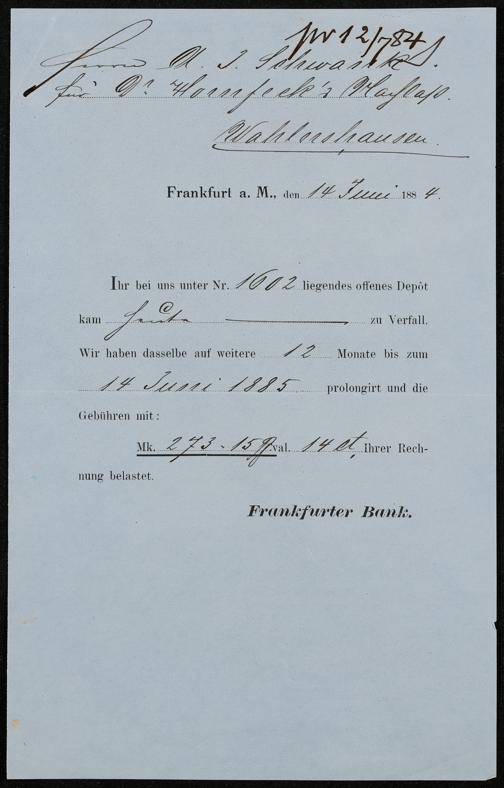 pr 12/7 84
Herrn A. J. Schwarz
für Dr Hornfeck's
Wahlershausen.
Frankfurt a. M., den 14 Juni 1884.
Ihr bei uns unter Nr. 1602 liegendes offenes Depôt
kam heute zu Verfall.
Wir haben dasselbe auf weitere 12 Monate bis zum
14 Juni 1885 prolongirt und die
Gebühren mit:
Mk. 273.15 val. 14 ct, Ihrer Rech-
nung belastet.
Frankfurter Bank.